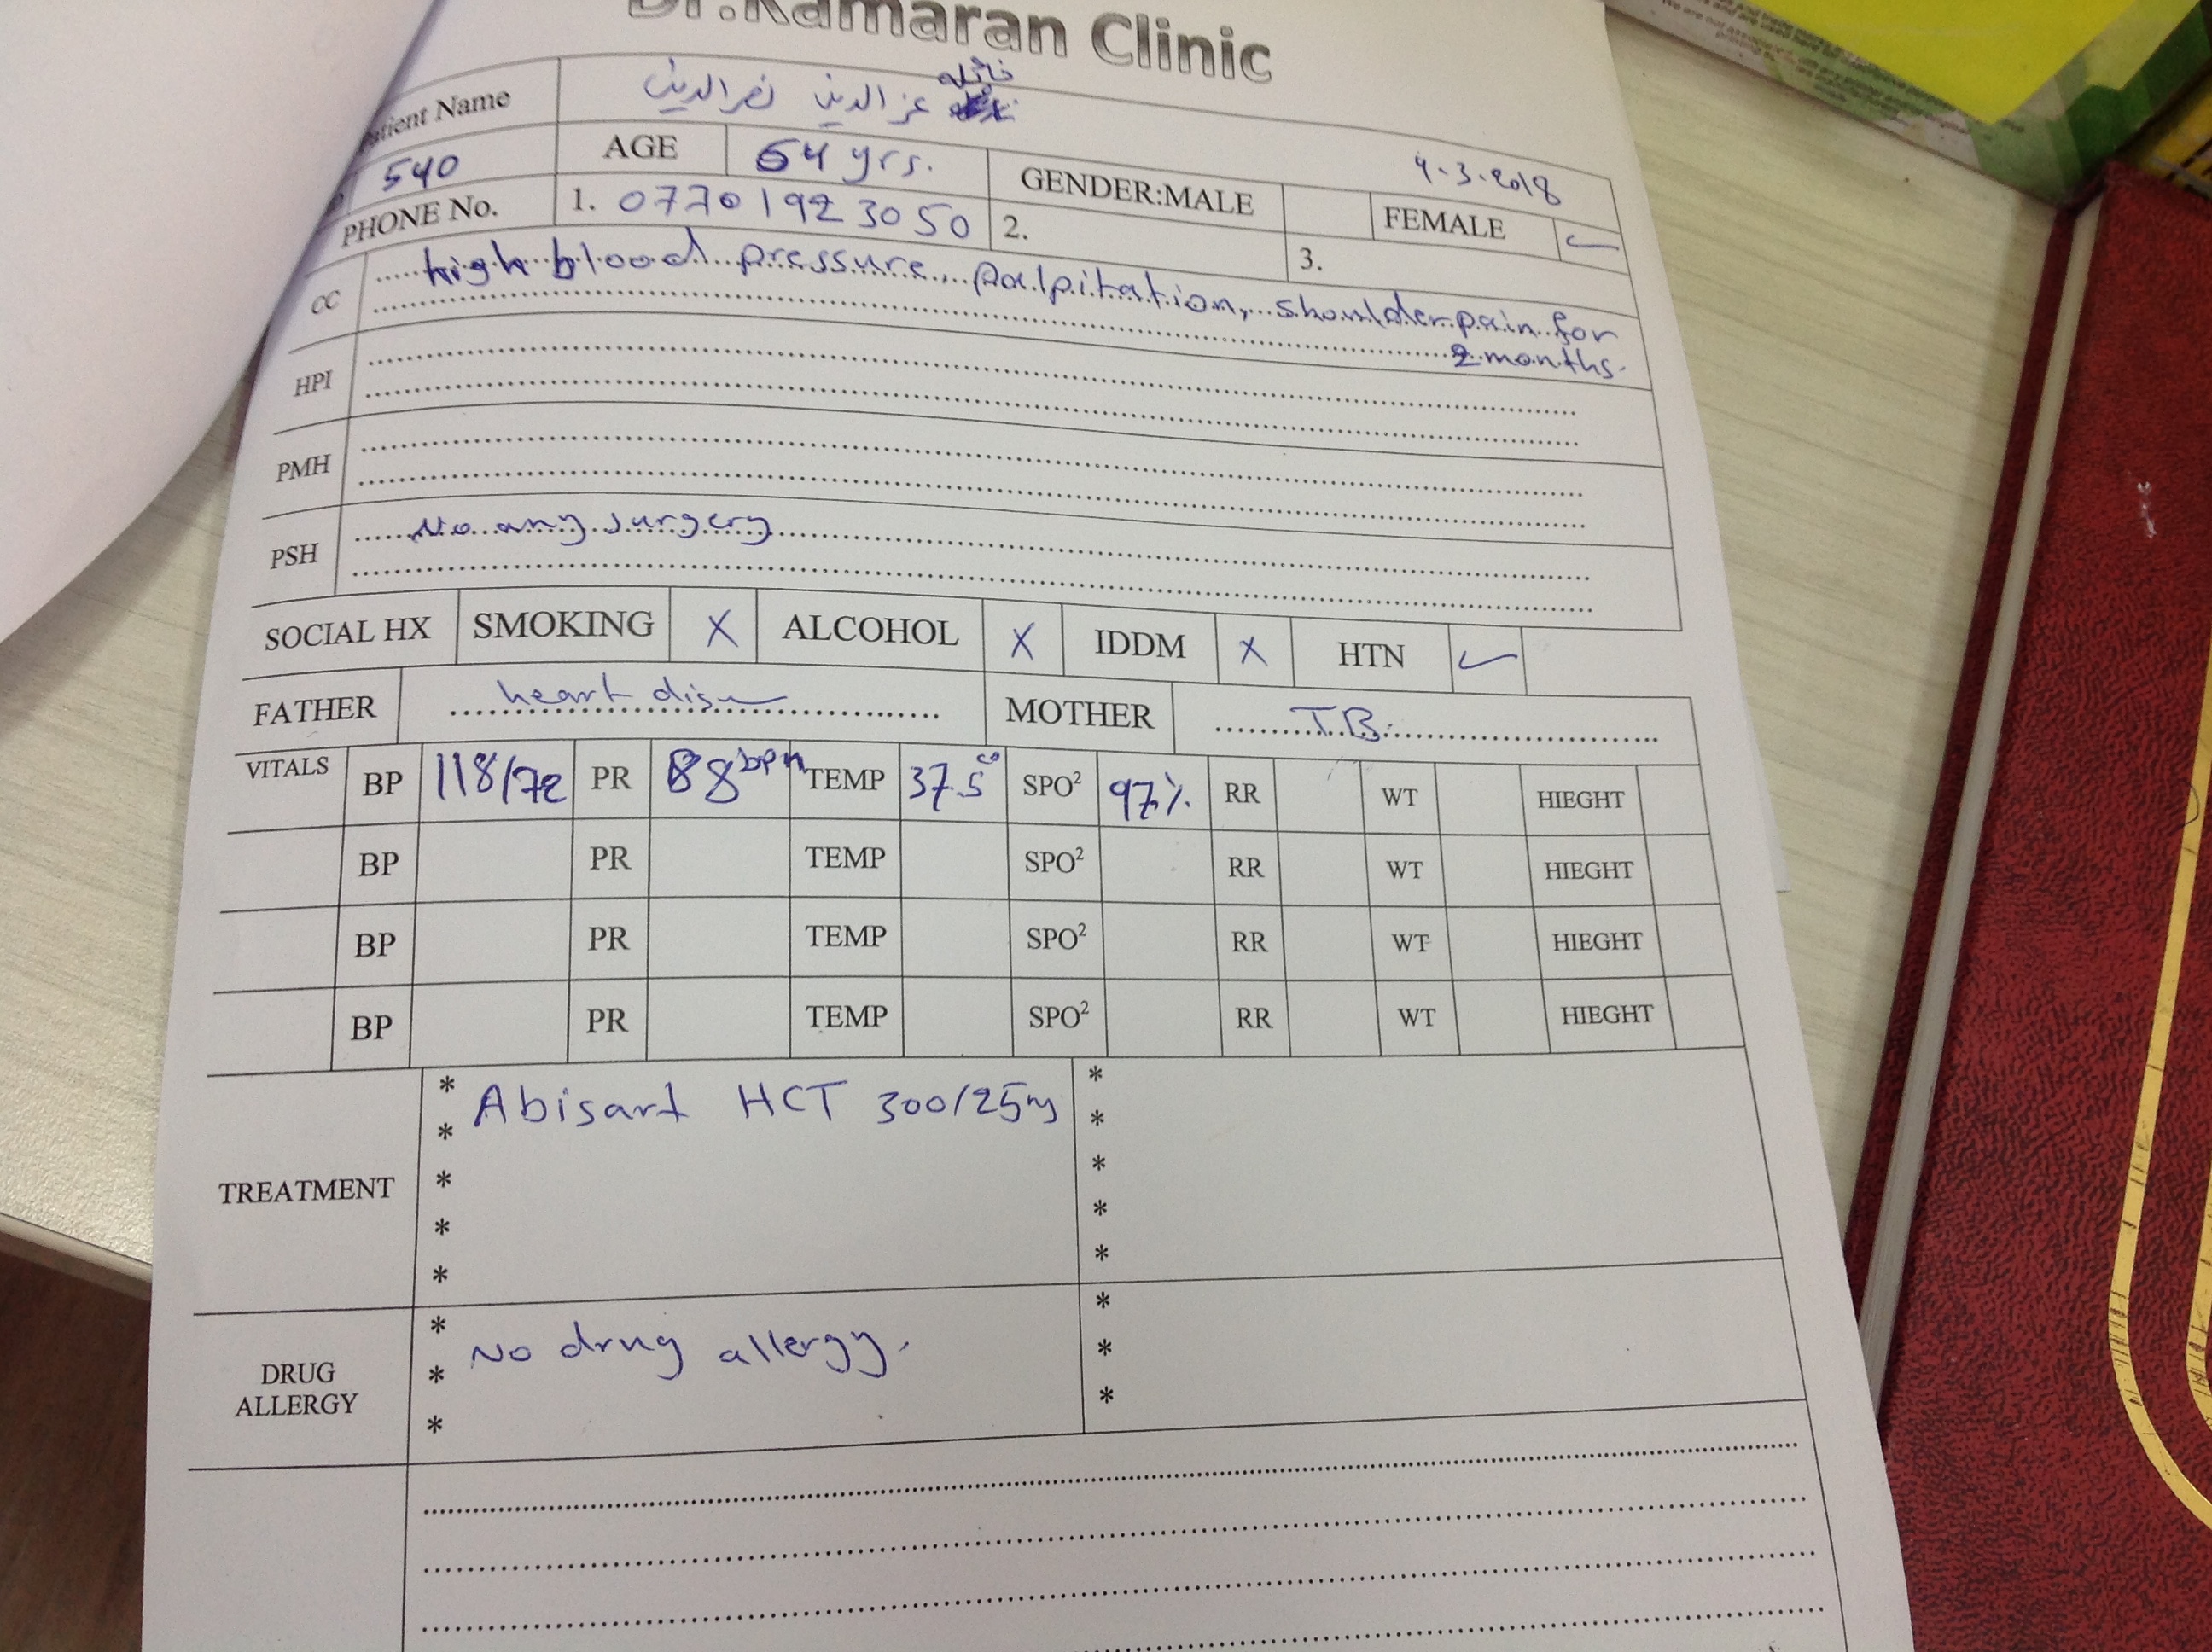 Dr.Kamaran Clinic
Patient Name عزالدين نصرالدين
4.3.2018
540 AGE 54 yrs. GENDER:MALE FEMALE ✓
PHONE No. 1. 0770 192 3050 2. 3.
CC high blood pressure, palpitation, shoulder pain for
2 months.
HPI
PMH
PSH No any surgery
SOCIAL HX SMOKING X ALCOHOL X IDDM X HTN ✓
FATHER heart MOTHER T.B.
VITALS BP 118/72 PR 88 bpm TEMP 37.5 c° SPO² 97% RR WT HIEGHT
BP PR TEMP SPO² RR WT HIEGHT
BP PR TEMP SPO² RR WT HIEGHT
BP PR TEMP SPO² RR WT HIEGHT
TREATMENT
* Abisart HCT 300/25mg *
* *
* *
* *
* *
DRUG
ALLERGY
* No drug allergy. *
* *
* *